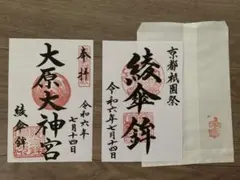 奉拝
大原大神宮
綾傘鉾
令和六年
七月十四日
京都祇園祭
綾傘鉾
令和六年七月十四日